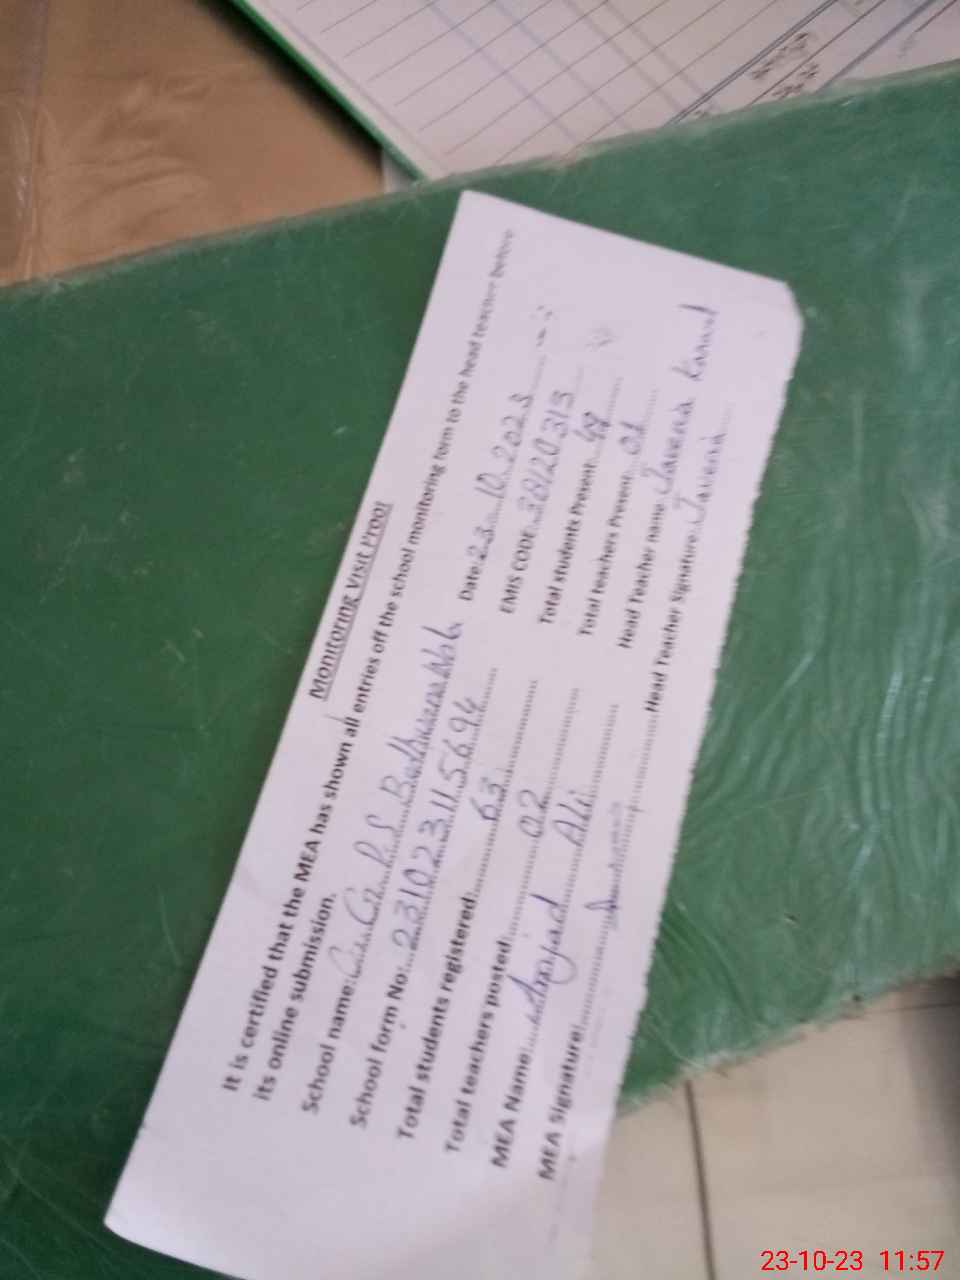 Monitoring Visit Proof
It is certified that the MEA has shown all entries off the school monitoring form to the head teacher before
its online submission.
School name: G.G.P.S Date: 23.10.2023
School form No: 231023115694 EMIS CODE 38120313
Total students registered: 63 Total students Present: 49
Total teachers posted: 02 Total teachers Present: 01
MEA Name: Amjad Ali Head Teacher name: Javeria Kanwal
MEA Signature: Head Teacher Signature: Javeria
23-10-23 11:57